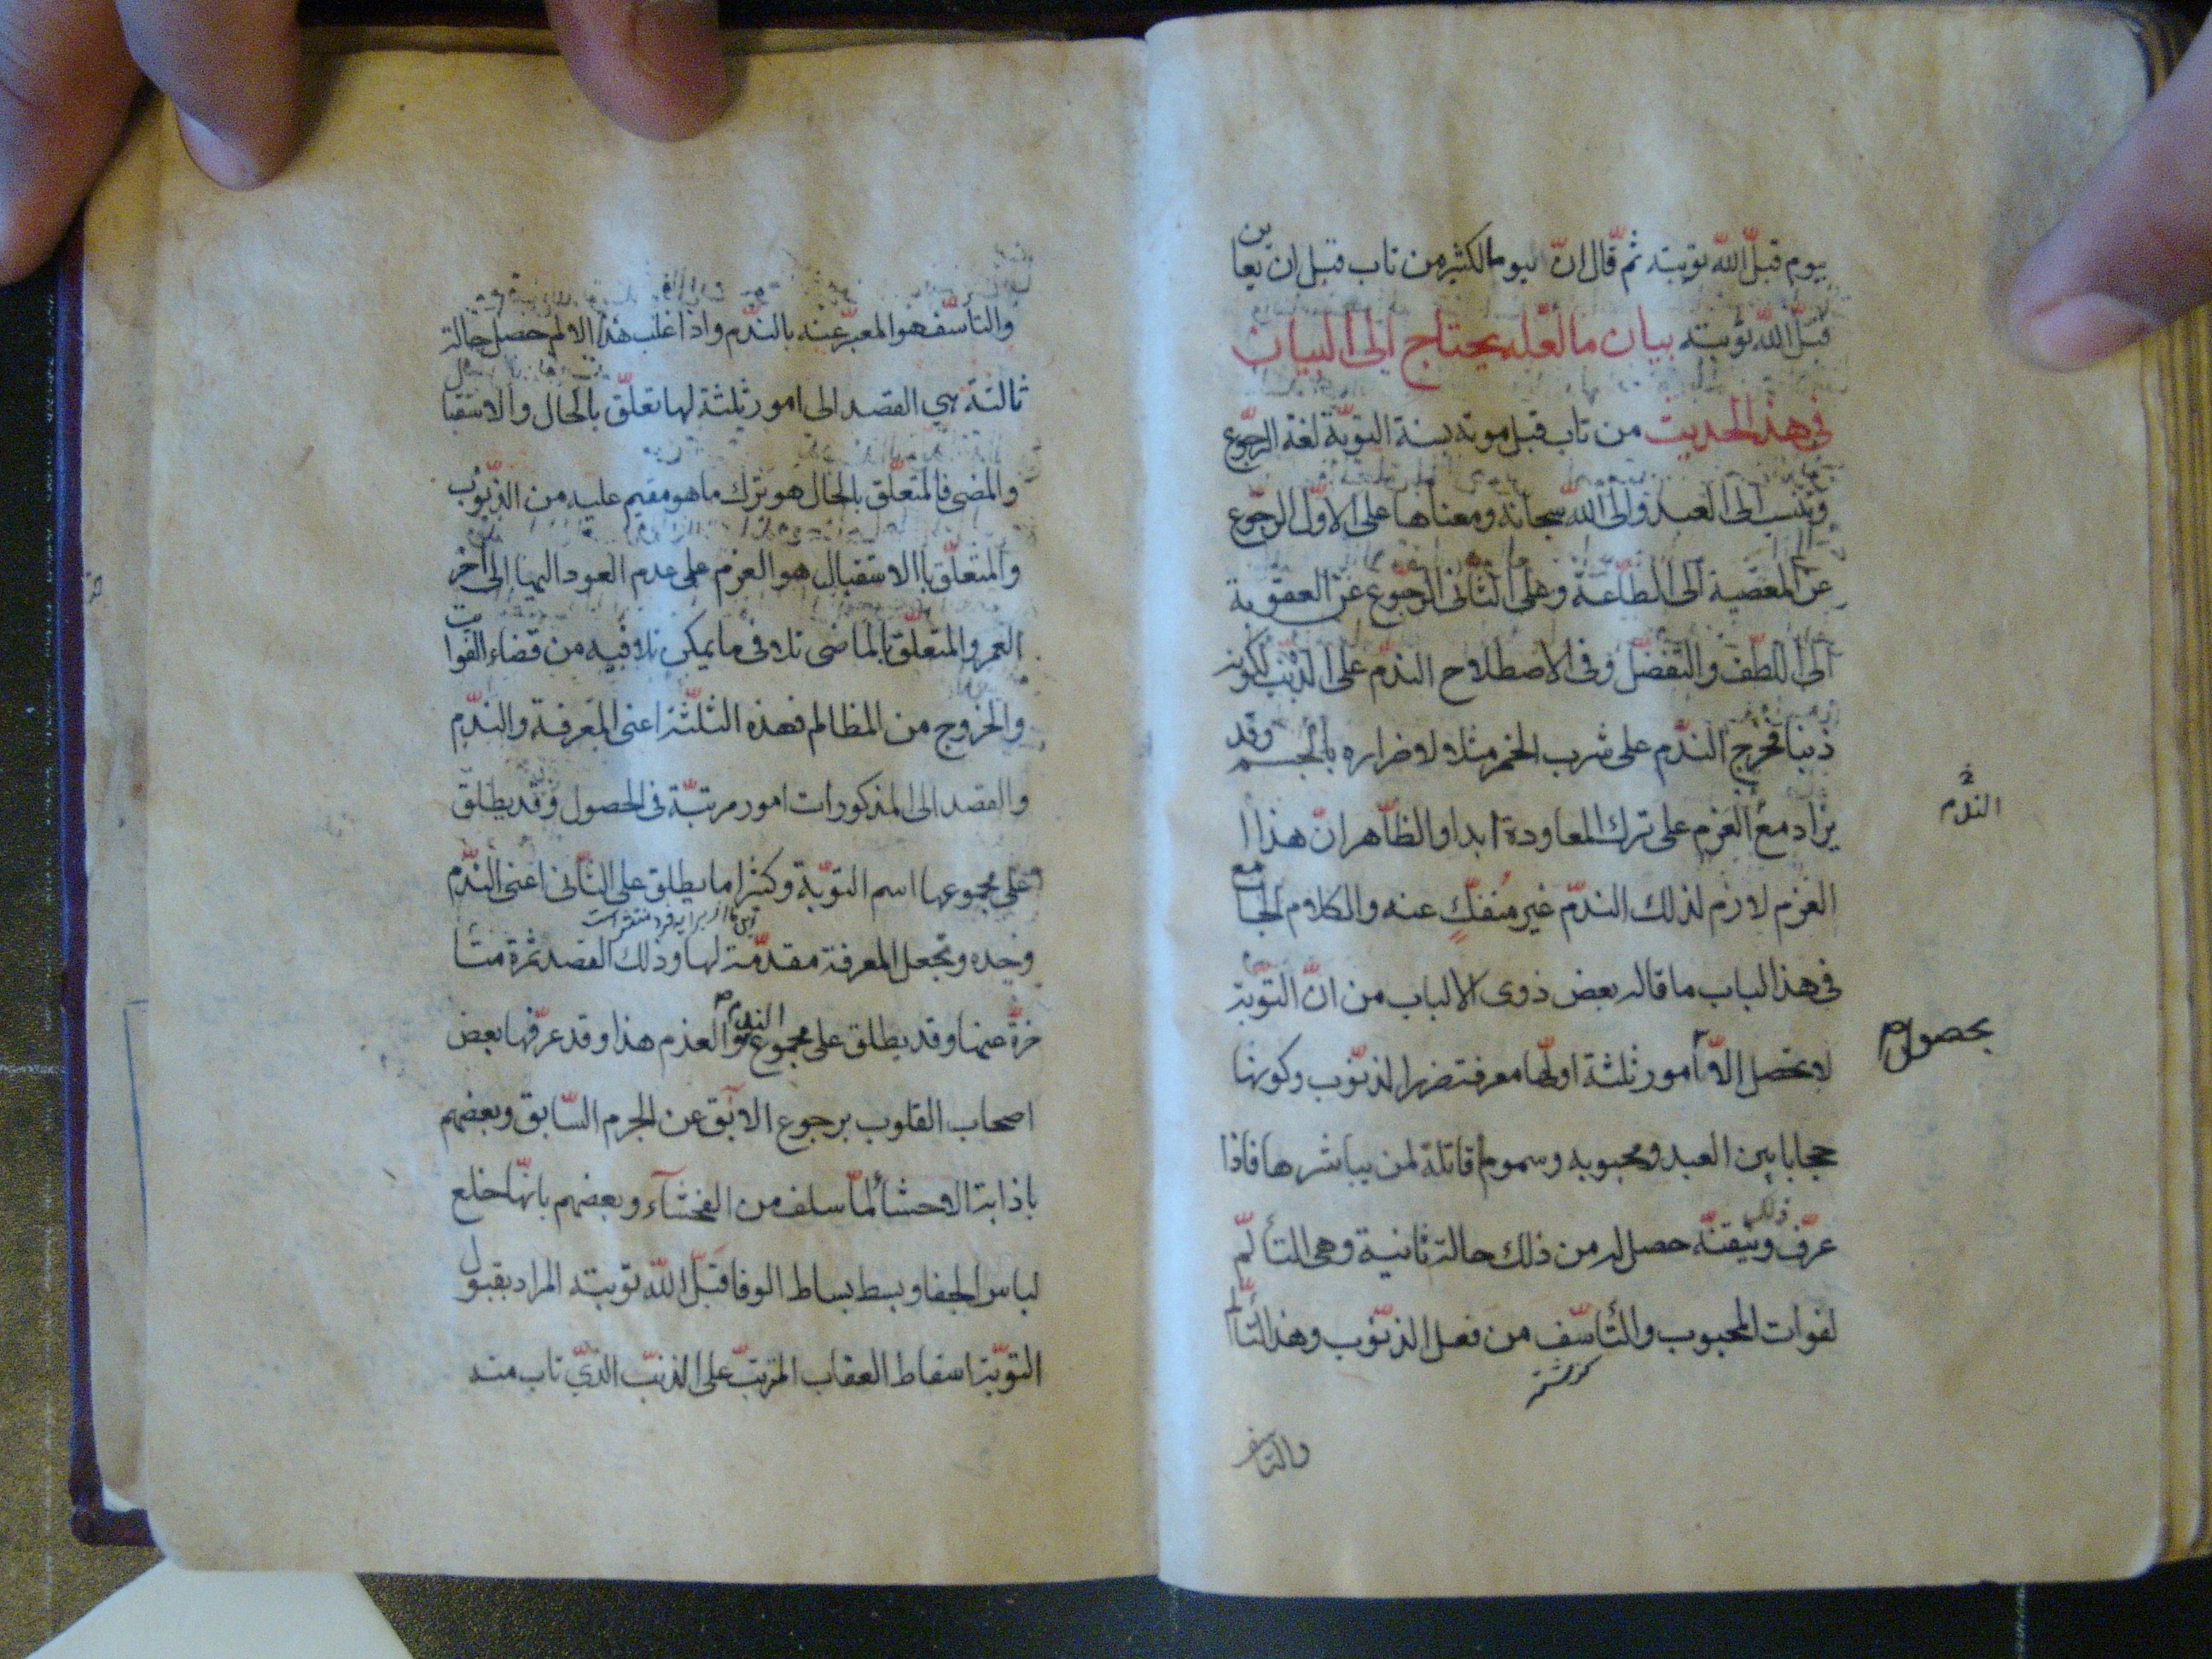 بيوم قبل الله توبته ثم قال ان يوما لكثير من تاب قبل ان يعاين
قبل الله توبته بيان ما لعله يحتاج الى البيان
في هذا الحديث من تاب قبل موته بسنة التوبة لغة الرجوع
وتنسب الى العبد والى الله سبحانه ومعناها على الاول الرجوع
عن المعصية الى الطاعة وعلى الثاني الرجوع عن العقوبة
الى اللطف والتفضل وفي الاصطلاح الندم على الذنب لكونه
ذنبا فخرج الندم على شرب الخمر مثلا لاضراره بالجسم وقد
يزاد مع العزم على ترك المعاودة ابدا والظاهر ان هذا ا
الندم
العزم لازم لذلك الندم غير منفك عنه والكلام الجامع
في هذا الباب ما قاله بعض ذوى الالباب من ان التوبة
لا تحصل الا امور ثلثة اولها معرفة ضرر الذنوب وكونها
بحصول
حجابا بين العبد ومحبوبه وسموما قاتلة لمن يباشرها فاذا
عرف ذلك وتيقنه حصل له من ذلك حالة ثانية وهى التألم
لفوات المحبوب والتاسف من فعل الذنوب وهذا التألم
والتاسف
والتاسف هو المعبر عنه بالندم واذا غلب هذا الالم حصل حالة
ثالثة هي القصد الى امور ثلثة لها تعلق بالحال والاستقبال
والمضى فالمتعلق بالحال هو ترك ما هو مقيم عليه من الذنوب
والمتعلق باالاستقبال هو العزم على عدم العود اليها الى آخر
العمر والمتعلق بالماضى تلافى ما يمكن تلافيه من قضاء الفوايت
والخروج من المظالم فهذه الثلثة اعنى المعرفة والندم
والقصد الى المذكورات امور مرتبة فى الحصول وقد يطلق
على مجموعها اسم التوبة وكثيرا ما يطلق على الثانى اعنى الندم
وحده وتجعل المعرفة مقدمة لها وذلك القصد ثمرة متأ
خرة عنها وقد يطلق على مجموع الندم والعذم هذا وقد عرفها بعض
اصحاب القلوب برجوع الابق عن الجرم السابق وبعضهم
باذابة الاحشا لما سلف من الفحشآء وبعضهم بانها خلع
لباس الجفا وبسط بساط الوفا قبل الله توبته المراد بقبول
التوبة اسقاط العقاب المترتب على الذنب الذي تاب منه